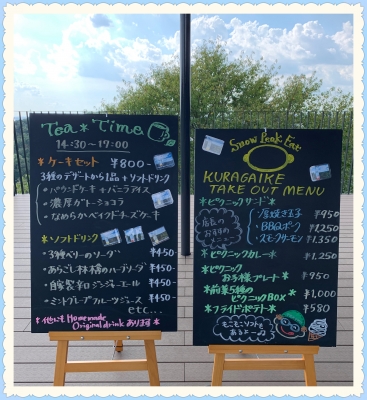 Tea * Time
14:30〜17:00
*ケーキセット ¥800-
3種のデザートから1品+ソフトドリンク
パウンドケーキ+バニラアイス
濃厚ガトーショコラ
なめらかベイクドチーズケーキ
*ソフトドリンク
・3種ベリーのソーダ ¥450-
・あらごし林檎のハーブソーダ ¥450-
・自家製辛口ジンジャーエール ¥450-
・ミントグレープフルーツジュース ¥450-
etc...
*他にもHomemade
Original drinkあります
Snow Peak Eat
KURAGAIKE
TAKE OUT MENU
*ピクニックサンド*
店長の
おすすめ
メニュー
厚焼き玉子 ¥950
BBQポーク ¥1,250
スモークサーモン ¥1,350
*ピクニックカレー* ¥1,250
*ピクニック
お子様プレート* ¥950
*前菜5種の
ピクニックBOX* ¥1,000
*フライドポテト* ¥580
もこもこソフトも
あるよー♪